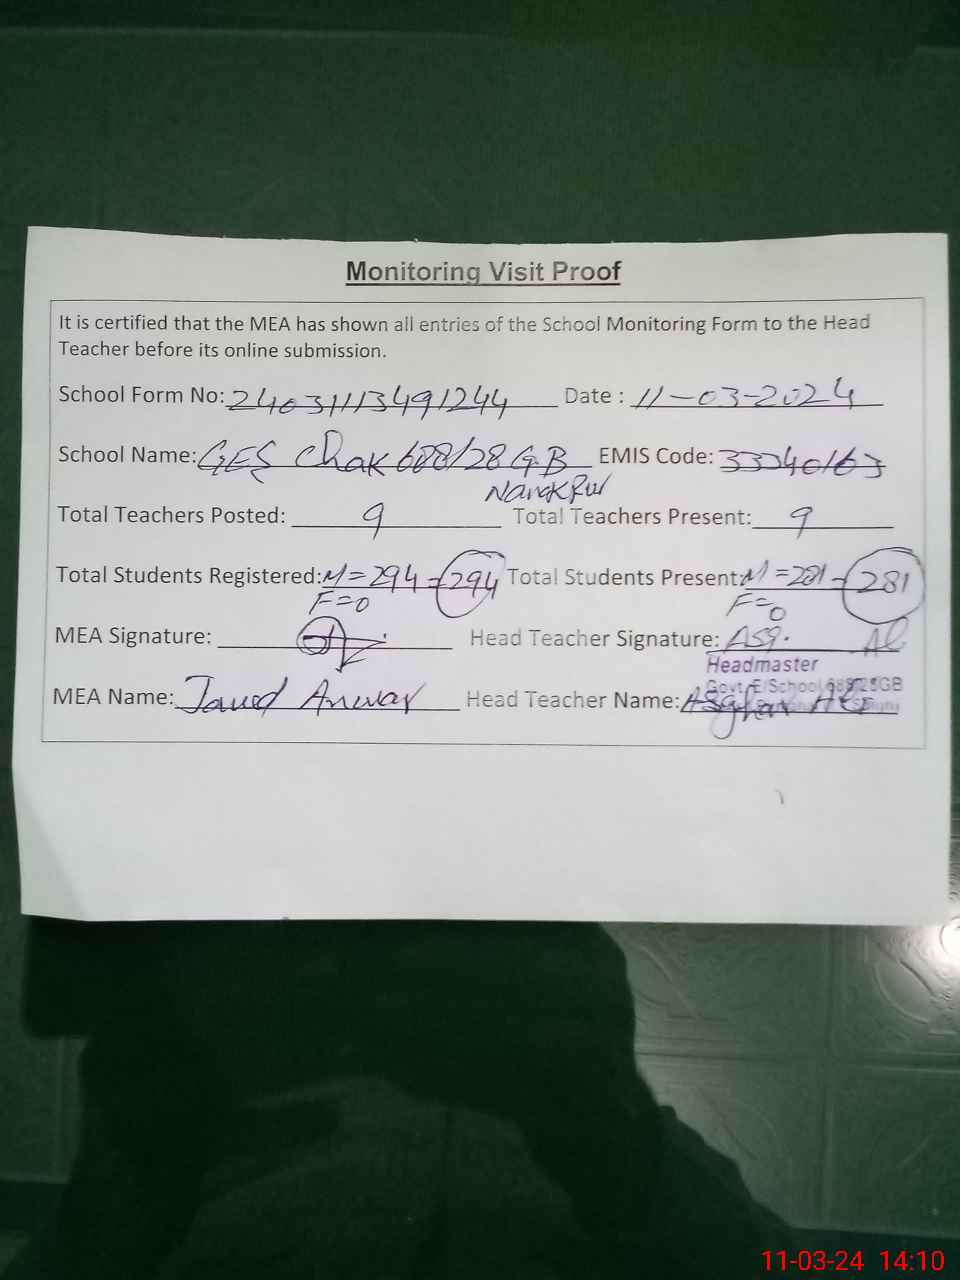 Monitoring Visit Proof
It is certified that the MEA has shown all entries of the School Monitoring Form to the Head
Teacher before its online submission.
School Form No: 24031113491244 Date : 11-03-2024
School Name: GES Chak 688/28 G.B EMIS Code: 33340163
Total Teachers Posted: 9 Total Teachers Present: 9
Total Students Registered: M=294 = 294 Total Students Present: M=281 = 281
F=0 F=0
MEA Signature: Head Teacher Signature:
Headmaster
Govt. E/School 688/28GB
MEA Name: Javed Anwar Head Teacher Name: Asghar Ali
11-03-24 14:10